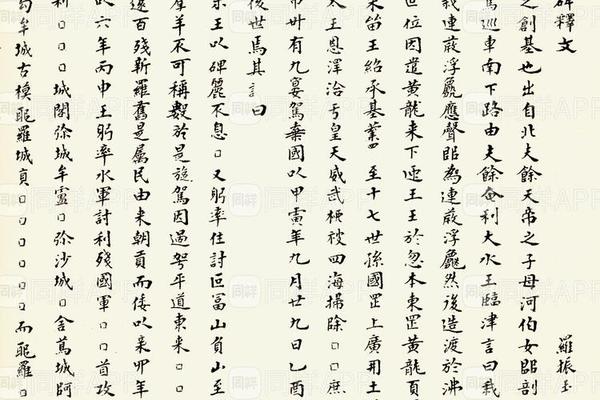 碑釋文 羅振玉
之創基也出自北夫餘天帝之子母河伯女郎剖
駕巡車南下路由夫餘奄利大水王臨津言曰我
連葭浮龜應聲即為連葭浮龜然後造渡於沸
世位因遣黃龍來下迎王王於忽本東罡黃龍頁
朱留王紹承基業 至十七世孫國罡上廣開土
太王恩澤洽于皇天威武柳被四海掃除□□庶
弔卅有九宴駕棄國以甲寅年九月廿九日乙酉
後世焉其言曰
王以碑麗不息□又躬率住討叵富山負山至
羣羊不可稱數於是旋駕因過駕平道東來□□
還百殘新羅舊是屬民由來朝貢而倭以來卯年
以六年丙申王躬率水軍討利殘國軍□□首攻
利□□□城閣弥城牟盧□弥沙城□舍蔦城阿
勾牟城古模耶羅城頁□□□□□而耶羅□